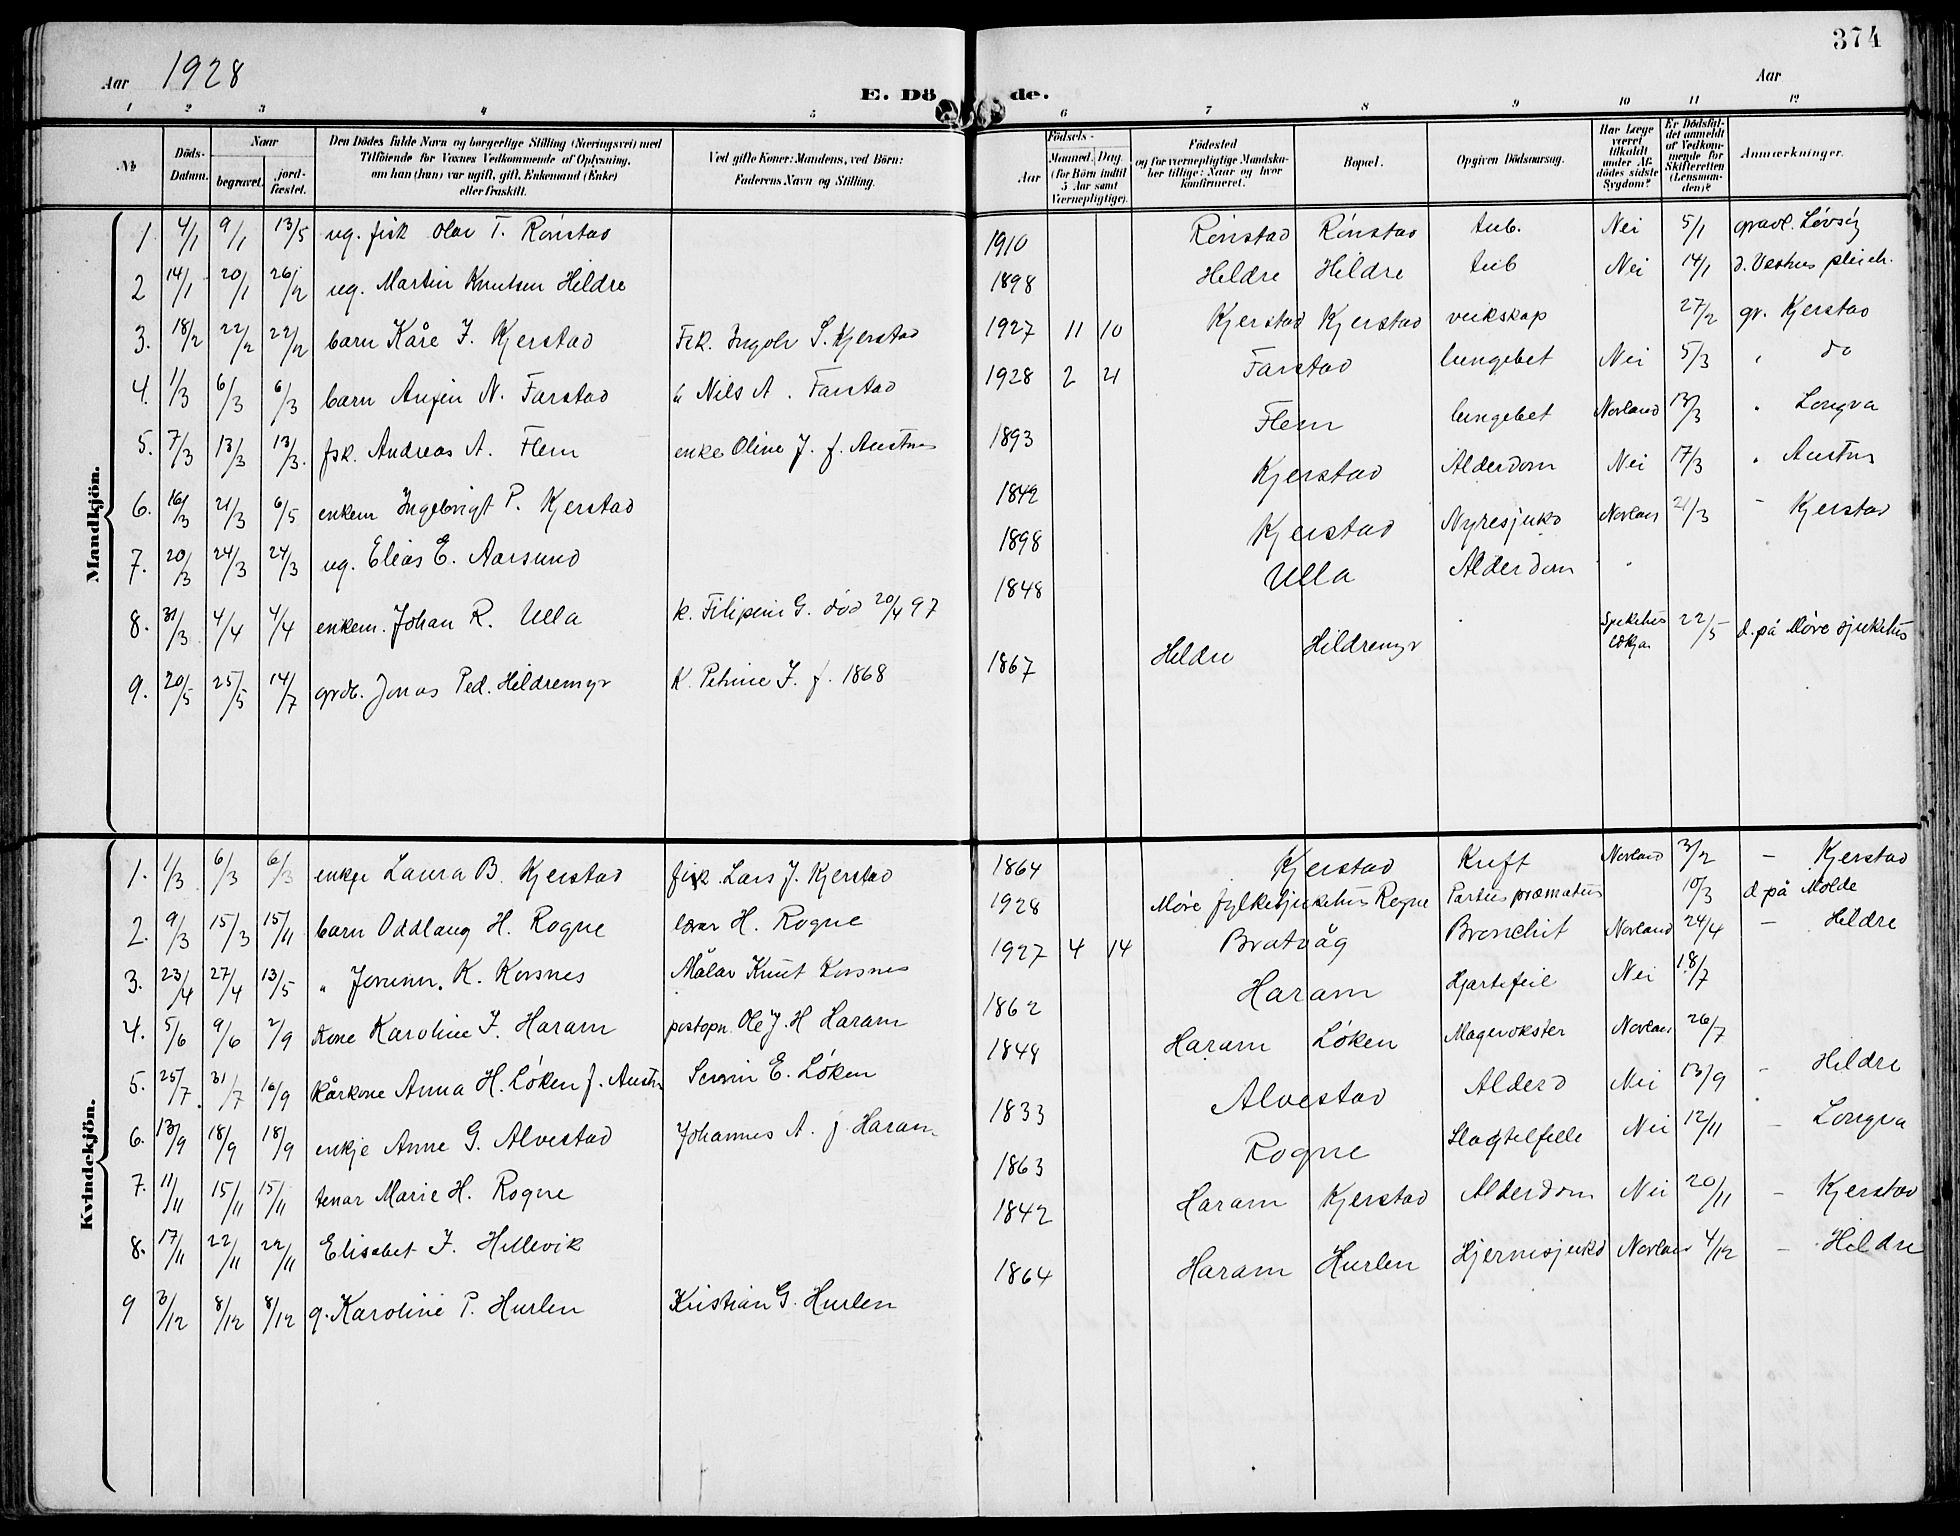 374
Aar 1928
E. Dö de.
Aar
1 2 3 4 5 6 7 8 9 10 11 12
No
Döds-Datum.
Naar
begravet.
jord-fæstet.
Den Dödes fulde Navn og borgerlige Stilling (Næringsvei) med
Tilföiende for Voxnes Vedkommende af Oplysning,
om han (hun) var ugift, gift, Enkemand (Enke)
eller fraskilt.
Ved gifte Koner: Mandens, ved Börn:
Faderens Navn og Stilling.
Födsels-
Aar
Maaned. Dag.
(for Börn indtil
5 Aar samt
Værnepligtige).
Födested
og for værnepligtige Mandska-
ber tillige: Naar og hvor
konfirmeret.
Bopæl.
Opgiven Dödsaarsag.
Har Læge
været
tilkaldt
under Af-
dödes sidste
Sygdom?
Er Dödsfal-
det anmeldt
af Vedkom-
mende for
Skifteretten
(Lensman-
den)?
Anmærkninger.
Mandkjön.
1. 4/1 9/1 13/5 ug. fisk Olav T. Rönstad 1910 Rönstad Rönstad tub. Nei 5/1 gravl. Løvsöy
2 14/1 20/1 26/12 ug. Martin Knutsen Hildre 1898 Hildre Hildre tub Nei 14/1 d. Vestnes pleieh.
3. 18/2 22/2 22/12 barn Kåre I. Kjerstad Fsk. Ingolv S. Kjerstad 1927 11 10 Kjerstad Kjerstad veikskap 27/2 gr. Kjerstad
4. 1/3 6/3 6/3 barn N. Farstad Nils A. Farstad 1928 2 21 Farstad lungebet Nei 5/3 do
5. 7/3 13/3 13/3. fsk. Andreas A. Flem enke Oline J. f. Austnes 1893 Flem lungebet Norland 13/3 " Longva
6. 16/3 21/3 6/5 enkem Ingebrigt P. Kjerstad 1842 Kjerstad Alderdom Nei 17/3 " Austnes
7. 20/3 24/3 24/3 ug. Elias E. Aarsund 1898 Kjerstad Nyresjukd Norland 21/3 - Kjerstad
8. 31/3 4/4 4/4 enkem. Johan R. Ulla k. Filipine G. død 20/4 97 1848 Ulla Alderdom "
9. 20/5 25/5 14/7 grdb. Jonas Ped. Hildremyr K. Petrine I. f. 1868 1867 Hildre Hildremyr Sjukehus 22/5 d. på Møre sjukehus
Kvindekjön.
1. 1/3 6/3 6/3 enkje Laura B. Kjerstad fisk. Lars J. Kjerstad 1864 Kjerstad Kreft Norland 3/2 - Kjerstad
2. 9/3 15/3 15/11 barn Oddlaug H. Rogne lærar H. Rogne 1928 Møre fylkesjukehus Rogne Partus præmaturus 10/3 d på Molde
3. 23/4 27/4 13/5 " Jorunn. K. Korsnes Målar Knut Korsnes 1927 4 14 Bratvåg Bronchit Norland 24/4 - Hildre
4. 5/6 9/6 2/9 Kone Karoline I. Haram postopn. Ole J. H Haram 1862 Haram Hjartefeil Nei 18/7
5. 25/7 31/7 16/9 kårkone Anna H. Løken f. Austn E. Løken 1848 Haram Løken Magevokster Norland 26/7
6. 13/9 18/9 18/9 enkje Anne G. Alvestad Johannes A. f. Haram 1833 Alvestad Alderd Nei 13/9 - Hildre
7. 11/11 15/11 15/11 tenar Marie H. Rogne 1863 Rogne Slagtelfelle Nei 12/11 - Longva
8. 17/11 22/11 22/11 Elisabet I. Hellevik 1842 Haram Kjerstad Alderdom Nei 20/11 - Kjerstad
9 3/12 8/12 8/12 g. Karoline P. Hurlen Kristian G. Hurlen 1864 Haram Hurlen Hjernesjukd Norland 4/12 - Hildre